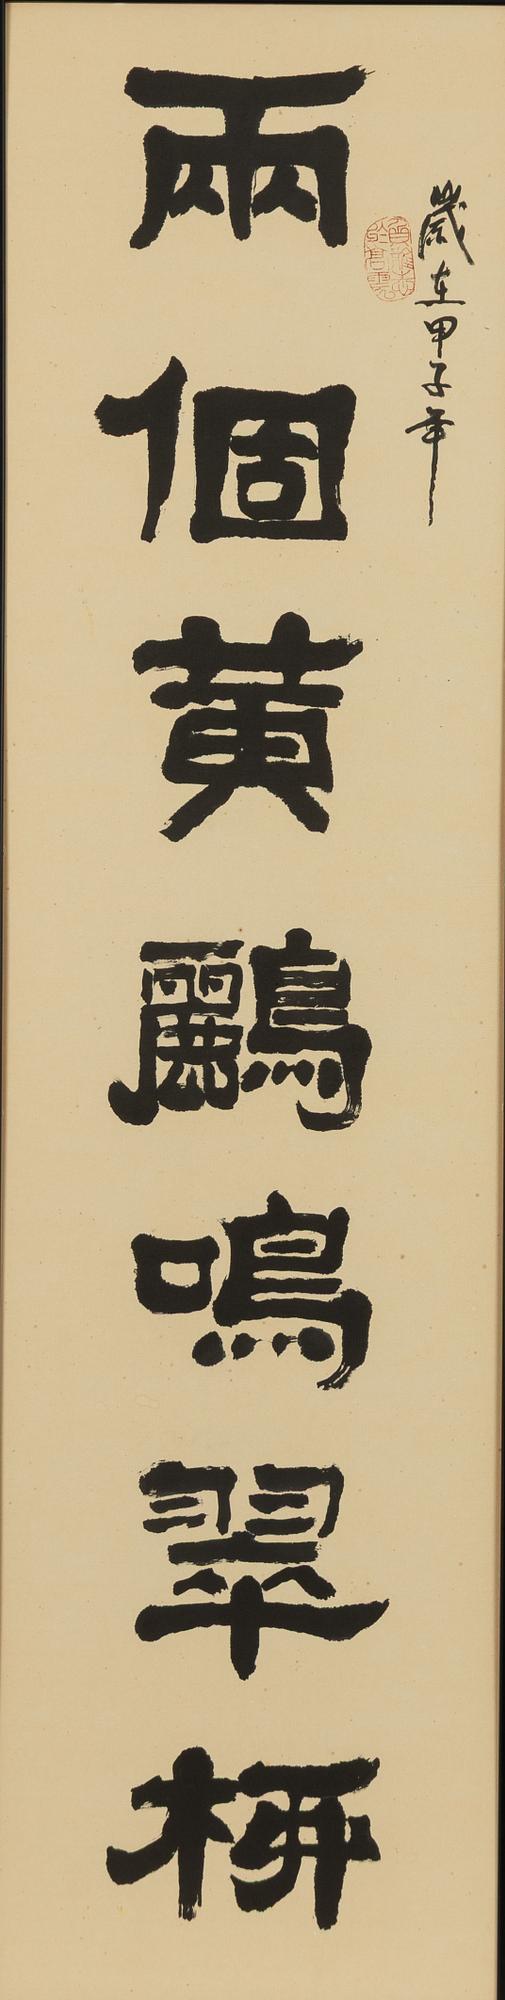 歲在甲子年
兩個黃鸝鳴翠柳